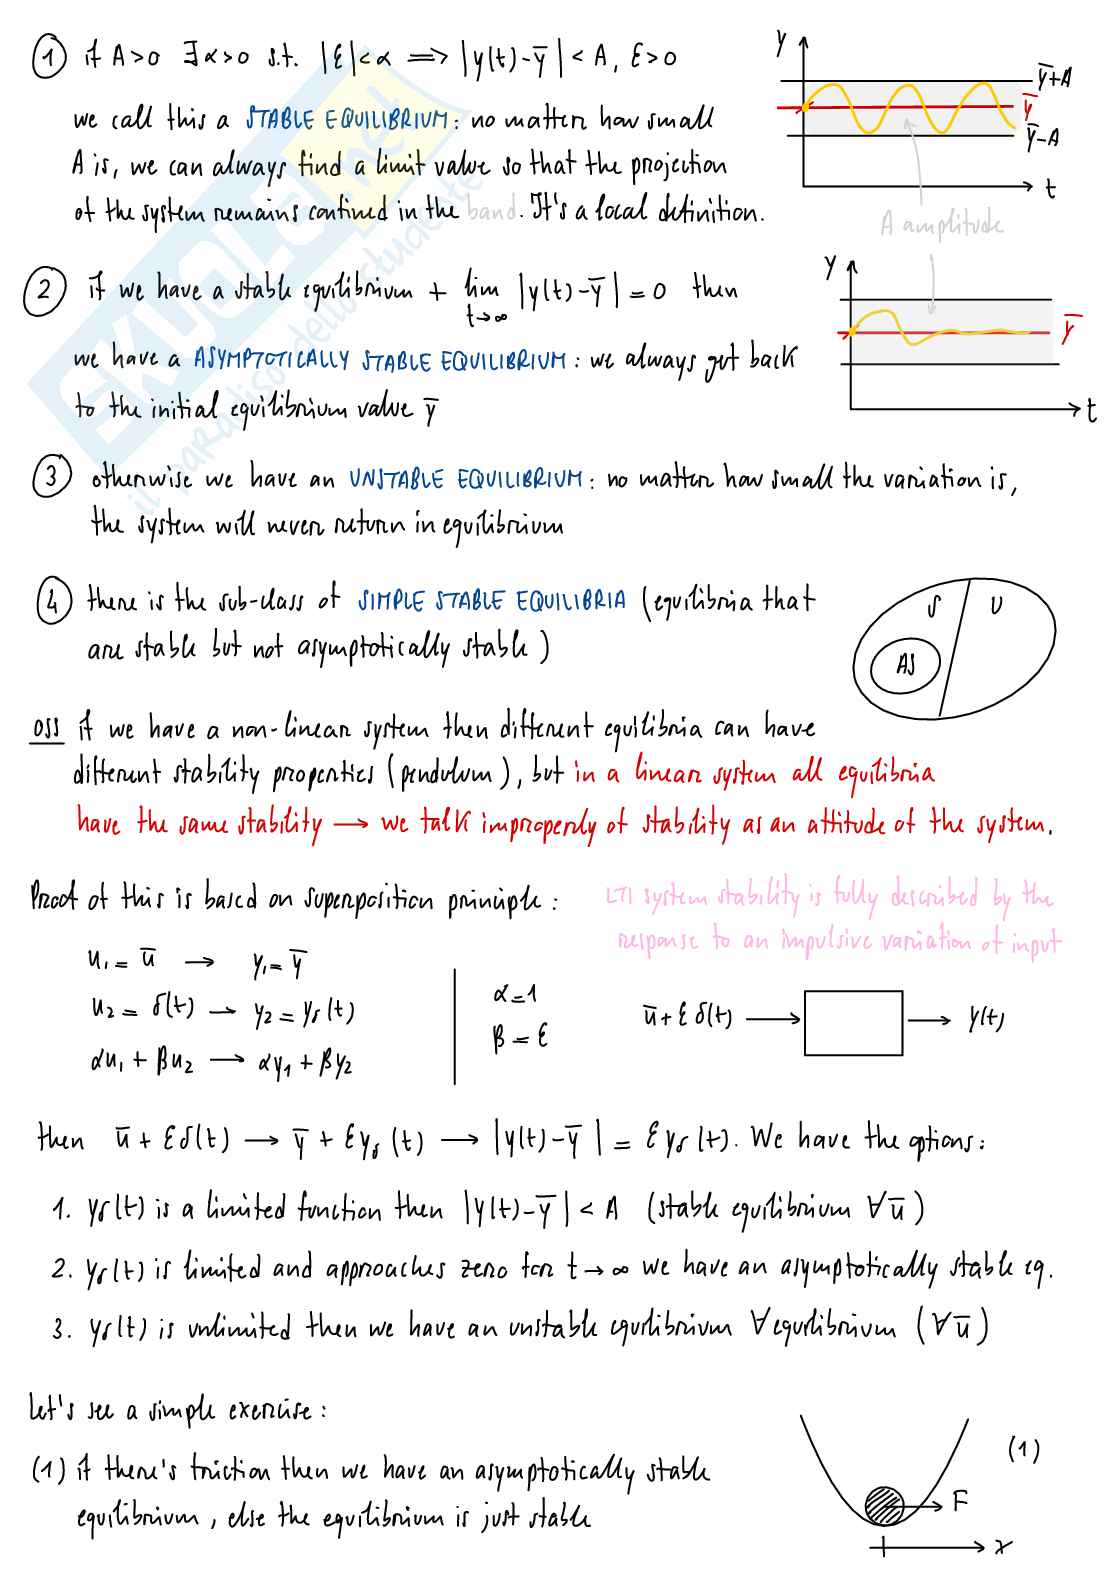 ① if A>0 ∃α>0 s.t. |ε|<α ⟹ |y(t)-ȳ|<A, ε>0
we call this a STABLE EQUILIBRIUM: no matter how small
A is, we can always find a limit value so that the projection
of the system remains confined in the band. It's a local definition.
y
ȳ+A
ȳ
ȳ-A
t
A amplitude
② if we have a stable equilibrium + lim t→∞ |y(t)-ȳ|=0 then
we have a ASYMPTOTICALLY STABLE EQUILIBRIUM: we always get back
to the initial equilibrium value ȳ
y
ȳ
t
③ otherwise we have an UNSTABLE EQUILIBRIUM: no matter how small the variation is,
the system will never return in equilibrium
④ there is the sub-class of SIMPLE STABLE EQUILIBRIA (equilibria that
are stable but not asymptotically stable)
S U
AS
OSS if we have a non-linear system then different equilibria can have
different stability properties (pendulum), but in a linear system all equilibria
have the same stability → we talk improperly of stability as an attitude of the system.
Proof of this is based on superposition principle:
LTI system stability is fully described by the
response to an impulsive variation of input
u₁=ū → y₁=ȳ
u₂=δ(t) → y₂=yδ(t)
αu₁+βu₂ → αy₁+βy₂
α=1
β=ε
ū+εδ(t) → y(t)
then ū+εδ(t) → ȳ+εyδ(t) → |y(t)-ȳ|=εyδ(t). We have the options:
1. yδ(t) is a limited function then |y(t)-ȳ|<A (stable equilibrium ∀ū)
2. yδ(t) is limited and approaches zero for t→∞ we have an asymptotically stable eq.
3. yδ(t) is unlimited then we have an unstable equilibrium ∀equilibrium (∀ū)
Let's see a simple exercise:
(1) if there's friction then we have an asymptotically stable
equilibrium, else the equilibrium is just stable
(1)
F
x
SKUOLA.net
il paradiso dello studente